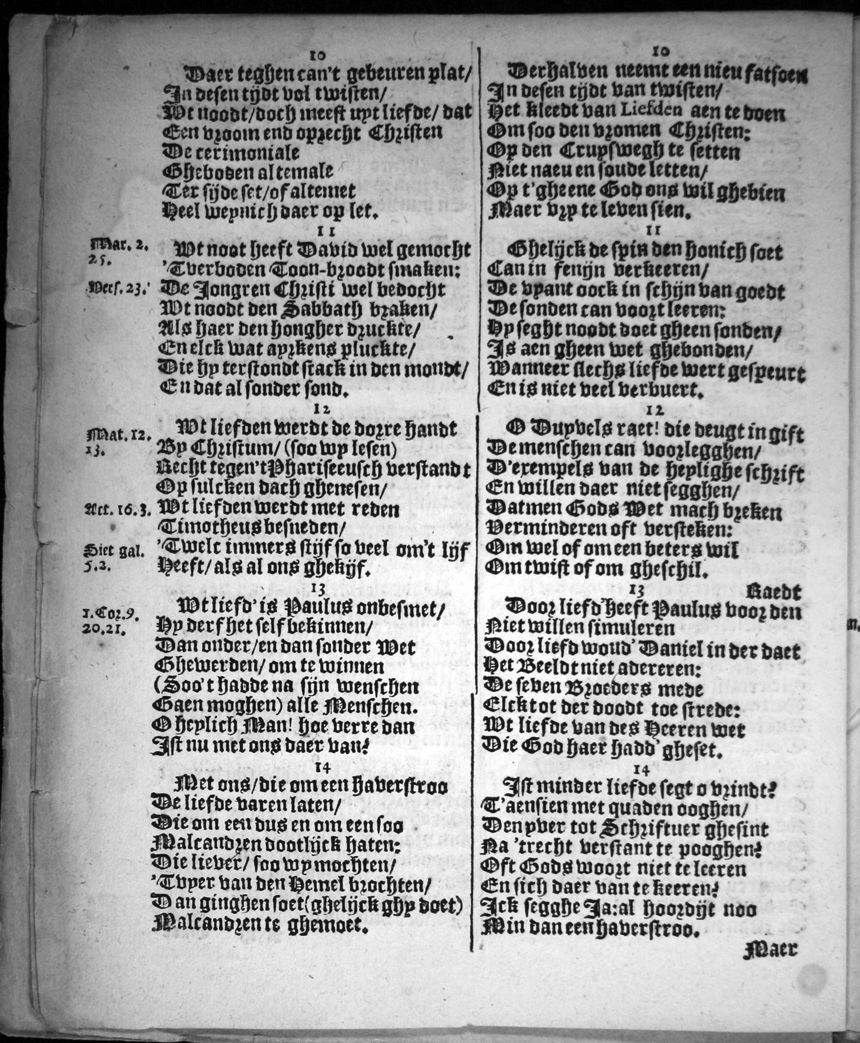 10
Daer teghen can't gebeuren plat/
In desen tijdt vol twisten/
Wt noodt/doch meest uyt liefde/ dat
Een vroom end oprecht Christen
De cerimoniale
Gheboden altemale
Ter sijde set/of altemet
Heel weynich daer op let.
11
Mar. 2.
25.
Vers. 23.
Wt noot heeft David wel gemocht
'Tverboden Toon-broodt smaken:
De Jongren Christi wel bedocht
Wt noodt den Sabbath braken/
Als haer den hongher druckte/
En elck wat ayrkens pluckte/
Die hy terstondt stack in den mondt/
En dat al sonder sond.
12
Mat. 12.
13.
Act. 16.3.
Siet gal.
5.2.
Wt liefden werdt de dorre handt
By Christum/ (soo wy lesen)
Recht tegen't Phariseeusch verstandt
Op sulcken dach ghenesen/
Wt liefden werdt met reden
Timotheus besneden/
'Twelc immers stijf so veel om't lijf
Heeft/ als al ons ghekijf.
13
1.Cor.9.
20,21.
Wt liefd' is Paulus onbesmet/
Hy derf het self bekinnen/
Dan onder/en dan sonder Wet
Ghewerden/ om te winnen
(Soo't hadde na sijn wenschen
Gaen moghen) alle Menschen.
O heylich Man! hoe verre dan
Ist nu met ons daer van?
14
Met ons/die om een haverstroo
De liefde varen laten/
Die om een dus en om een soo
Malcandren dootlijck haten:
Die liever/ soo wy mochten/
'Tvyer van den Hemel brochten/
Dan ginghen soet(ghelijck ghy doet)
Malcandren te ghemoet.
10
Derhalven neemt een nieu fatsoen
In desen tijdt van twisten/
Het kleedt van Liefden aen te doen
Om soo den vromen Christen:
Op den Cruyswegh te setten
Niet naeu en soude letten/
Op t'gheene God ons wil ghebien
Maer vry te leven sien.
11
Ghelijck de spin den honich soet
Can in fenijn verkeeren/
De vyant oock in schijn van goedt
De sonden can voort leeren:
Hy seght noodt doet gheen sonden/
Is aen gheen wet ghebonden/
Wanneer slechs liefde wert gespeurt
En is niet veel verbuert.
12
O Duyvels raet! die deugt in gift
De menschen can voorlegghen/
D'exempels van de heylighe schrift
En willen daer niet segghen/
Datmen Gods Wet mach breken
Verminderen oft versteken:
Om wel of om een beters wil
Om twist of om gheschil.
13
Raedt
Door liefd' heeft Paulus voor den
Niet willen simuleren
Door liefd woud' Daniel in der daet
Het Beeldt niet adereren:
De seven Broeders mede
Elck tot der doodt toe strede:
Wt liefde van des Heeren wet
Die God haer hadd' gheset.
14
Ist minder liefde segt o vrindt?
T'aensien met quaden ooghen/
Den yver tot Schriftuer ghesint
Na 'trecht verstant te pooghen?
Oft Gods woort niet te leeren
En sich daer van te keeren?
Ick segghe Ja:al hoordijt noo
Min dan een haverstroo.
Maer